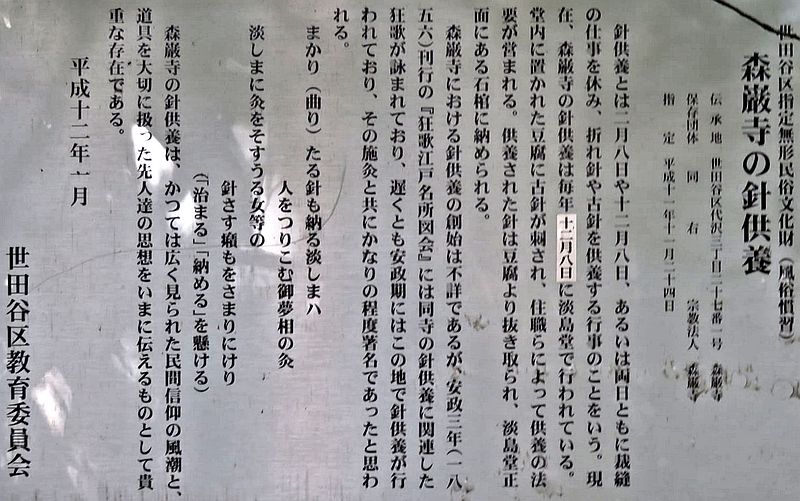 世田谷区指定無形民俗文化財(風俗慣習)
森巌寺の針供養
伝承地 世田谷区代沢三丁目二十七番一号 森巌寺
保存団体 同右 宗教法人 森巌寺
指定 平成十一年十一月二十四日
針供養とは二月八日や十二月八日、あるいは両日ともに裁縫
の仕事を休み、折れ針や古針を供養する行事のことをいう。現
在、森巌寺の針供養は毎年十二月八日に淡島堂で行われている。
堂内に置かれた豆腐に古針が刺され、住職らによって供養の法
要が営まれる。供養された針は豆腐より抜き取られ、淡島堂正
面にある石棺に納められる。
森巌寺における針供養の創始は不詳であるが、安政三年(一八
五六)刊行の『狂歌江戸名所図会』には同寺の針供養に関連した
狂歌が詠まれており、遅くとも安政期にはこの地で針供養が行
われており、その施灸と共にかなりの程度著名であったと思わ
れる。
まかり(曲り)たる針も納る淡しまハ
人をつりこむ御夢相の灸
淡しまに灸をそすうる女等の
針さす癪もをさまりにけり
(「治まる」「納める」を懸ける)
森巌寺の針供養は、かつては広く見られた民間信仰の風潮と、
道具を大切に扱った先人達の思想をいまに伝えるものとして貴
重な存在である。
平成十二年一月
世田谷区教育委員会